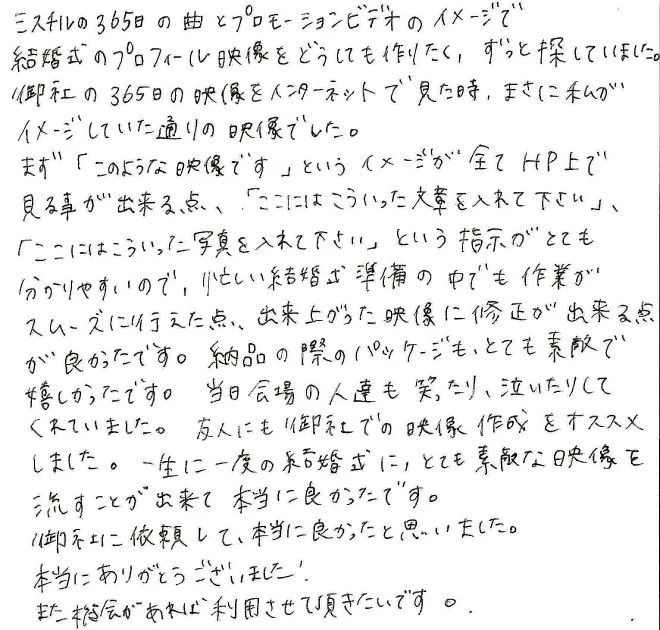 ミスチルの365日の曲とプロモーションビデオのイメージで
結婚式のプロフィール映像をどうしても作りたく、ずっと探していました。
御社の365日の映像をインターネットで見た時、まさに私が
イメージしていた通りの映像でした。
まず「このような映像です」というイメージが全てHP上で
見る事が出来る点、「ここにはこういった文章を入れて下さい」、
「ここにはこういった写真を入れて下さい」という指示がとても
分かりやすいので、忙しい結婚式準備の中でも作業が
スムーズに行えた点、出来上がった映像に修正が出来る点
が良かったです。納品の際のパッケージも、とても素敵で
嬉しかったです。当日会場の人達も笑ったり、泣いたりして
くれていました。友人にも御社での映像作成をオススメ
しました。一生に一度の結婚式に、とても素敵な映像を
流すことが出来て本当に良かったです。
御社に依頼して、本当に良かったと思いました。
本当にありがとうございました!
また機会があれば利用させて頂きたいです。